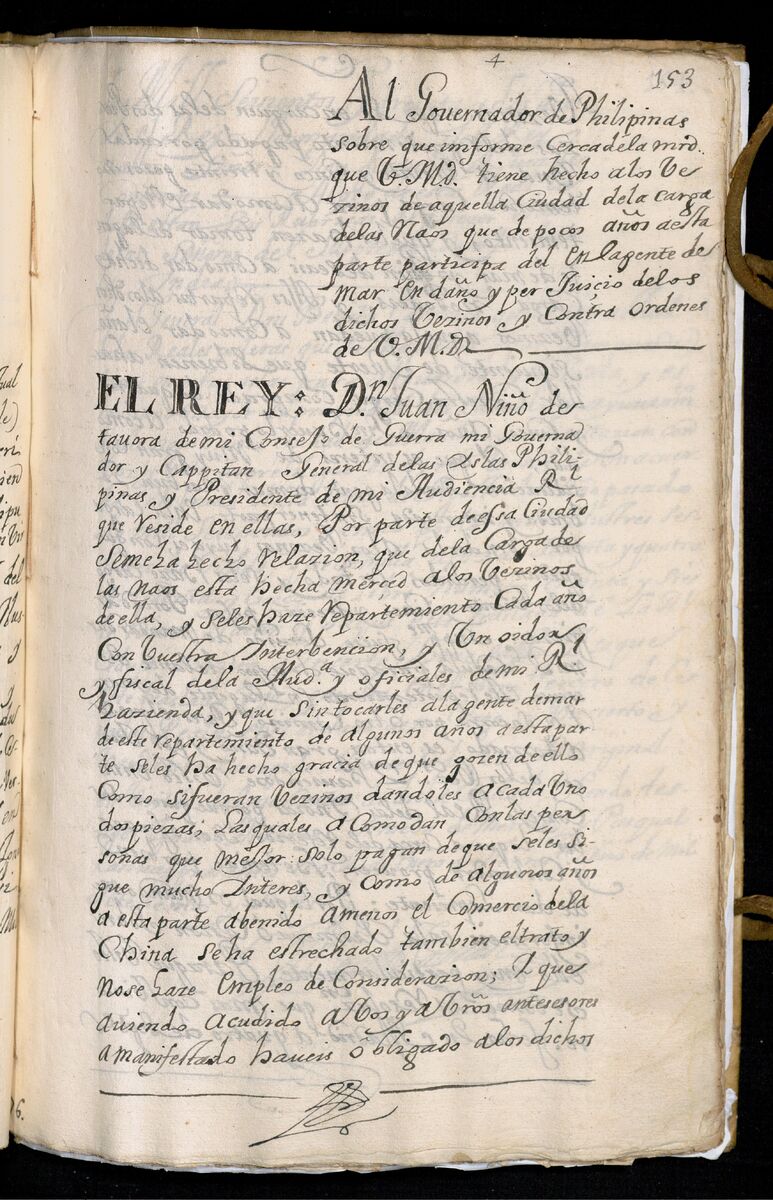 4
153
Al Governador de Philipinas
sobre que imforme cerca dela mrd.
que V.M.d. tiene hecho alos Ve
zinos de aquella Ciudad dela carga
delas Naos que de pocos años aesta
parte participa del en la gente de
mar en daño y per Juicio delos
dichos Vezinos y Contra ordenes
de V.M.D.
EL REY: D.n Juan Niño de
tavora de mi Consejo de Guerra mi Governa
dor y Cappitan General delas Yslas Phili-
pinas y Presidente de mi Audiencia Rl
que reside en ellas, Por parte de essa Ciudad
seme ha hecho relazion, que dela Carga de
las Naos esta hecha merced alos Vezinos
de ella, y seles haze repartemiento cada año
Con Vuestra Interbencion, y Un oidor
y fiscal dela Aud.a y oficiales de mi Rl
hazienda, y que sin tocarles ala gente de mar
de este repartemiento de algunos años a esta par
te seles ha hecho gracia de que gozen de ello
Como si fueran Vezinos dandoles a cada Uno
dos piezas; Las quales acomodan Con las per
sonas que mejor solo pagan de que seles si-
gue mucho Interes, y Como de algunos años
a esta parte abenido amenos el Comercio dela
China se ha estrechado tambien el trato y
nose haze empleo de Considerazion; Y que
aviendo acudido a Vos y a Vros antesesores
a manifestado haveis obligado alos dichos